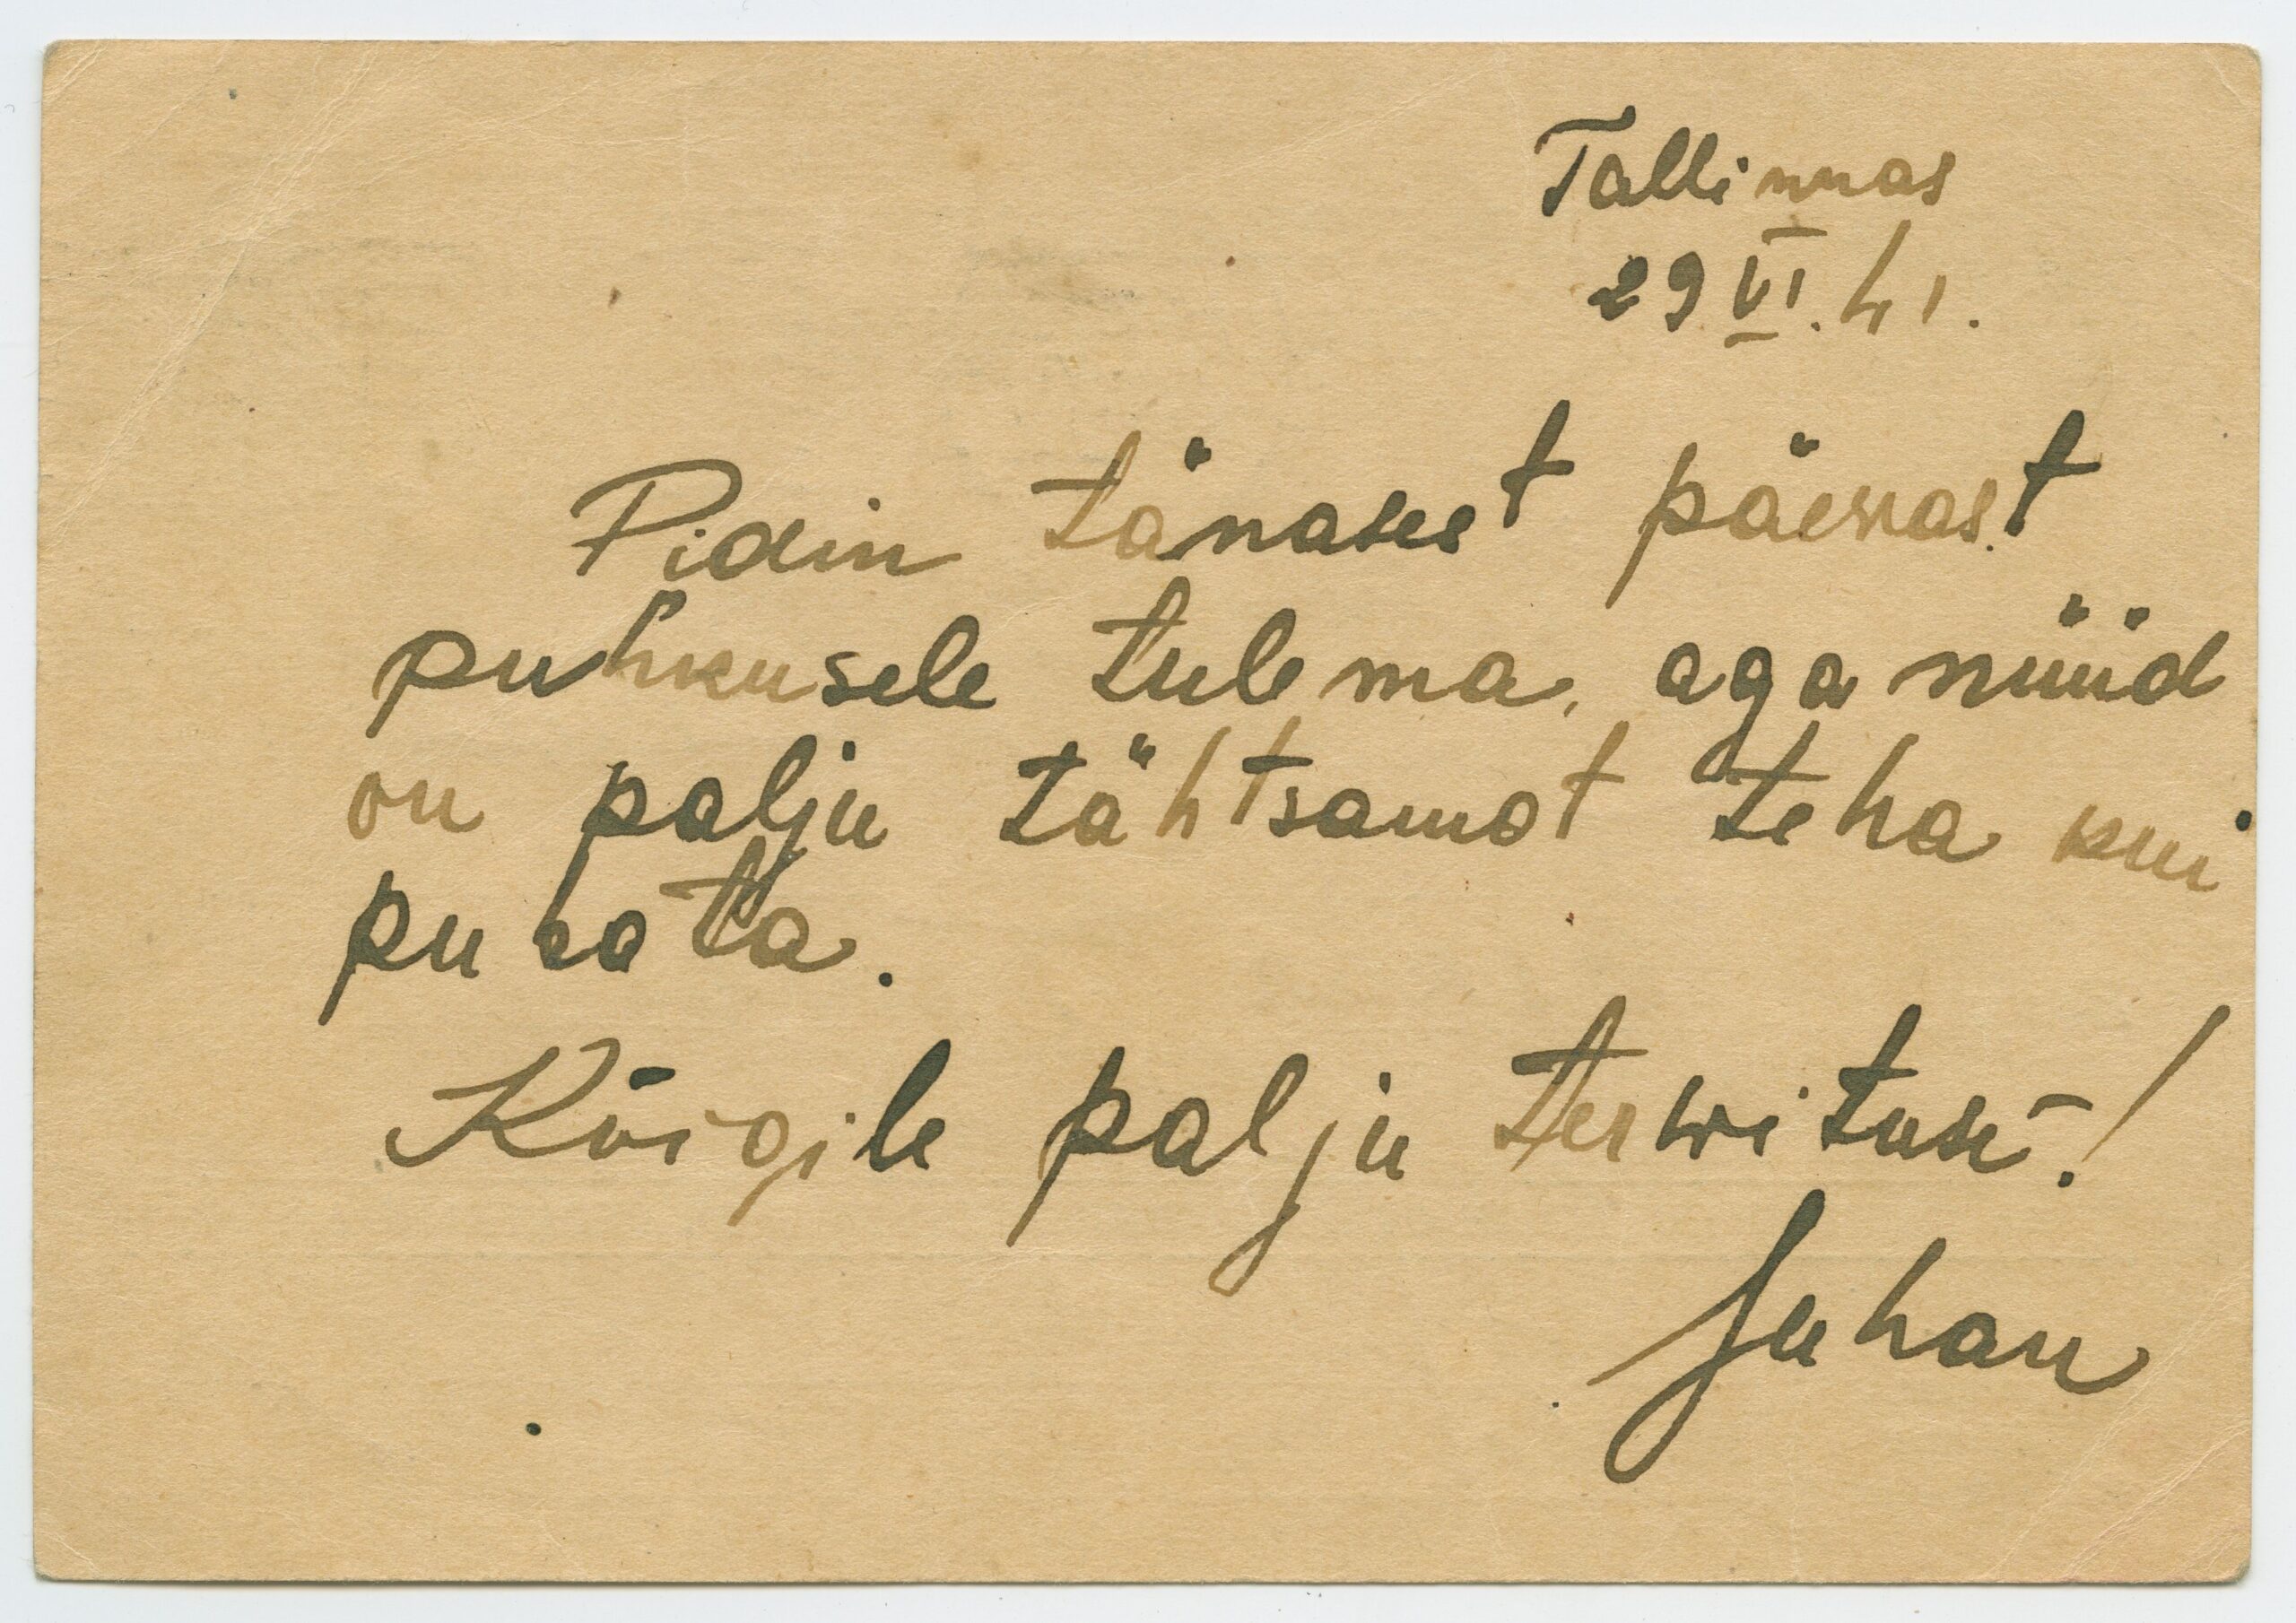 Tallinnas
29 VI. 41.
Pidin tänasest päevast
puhkusele tulema, aga nüüd
on palju tähtsamat teha kui
puhata.
Kõigile palju terwitusi!
Juhan